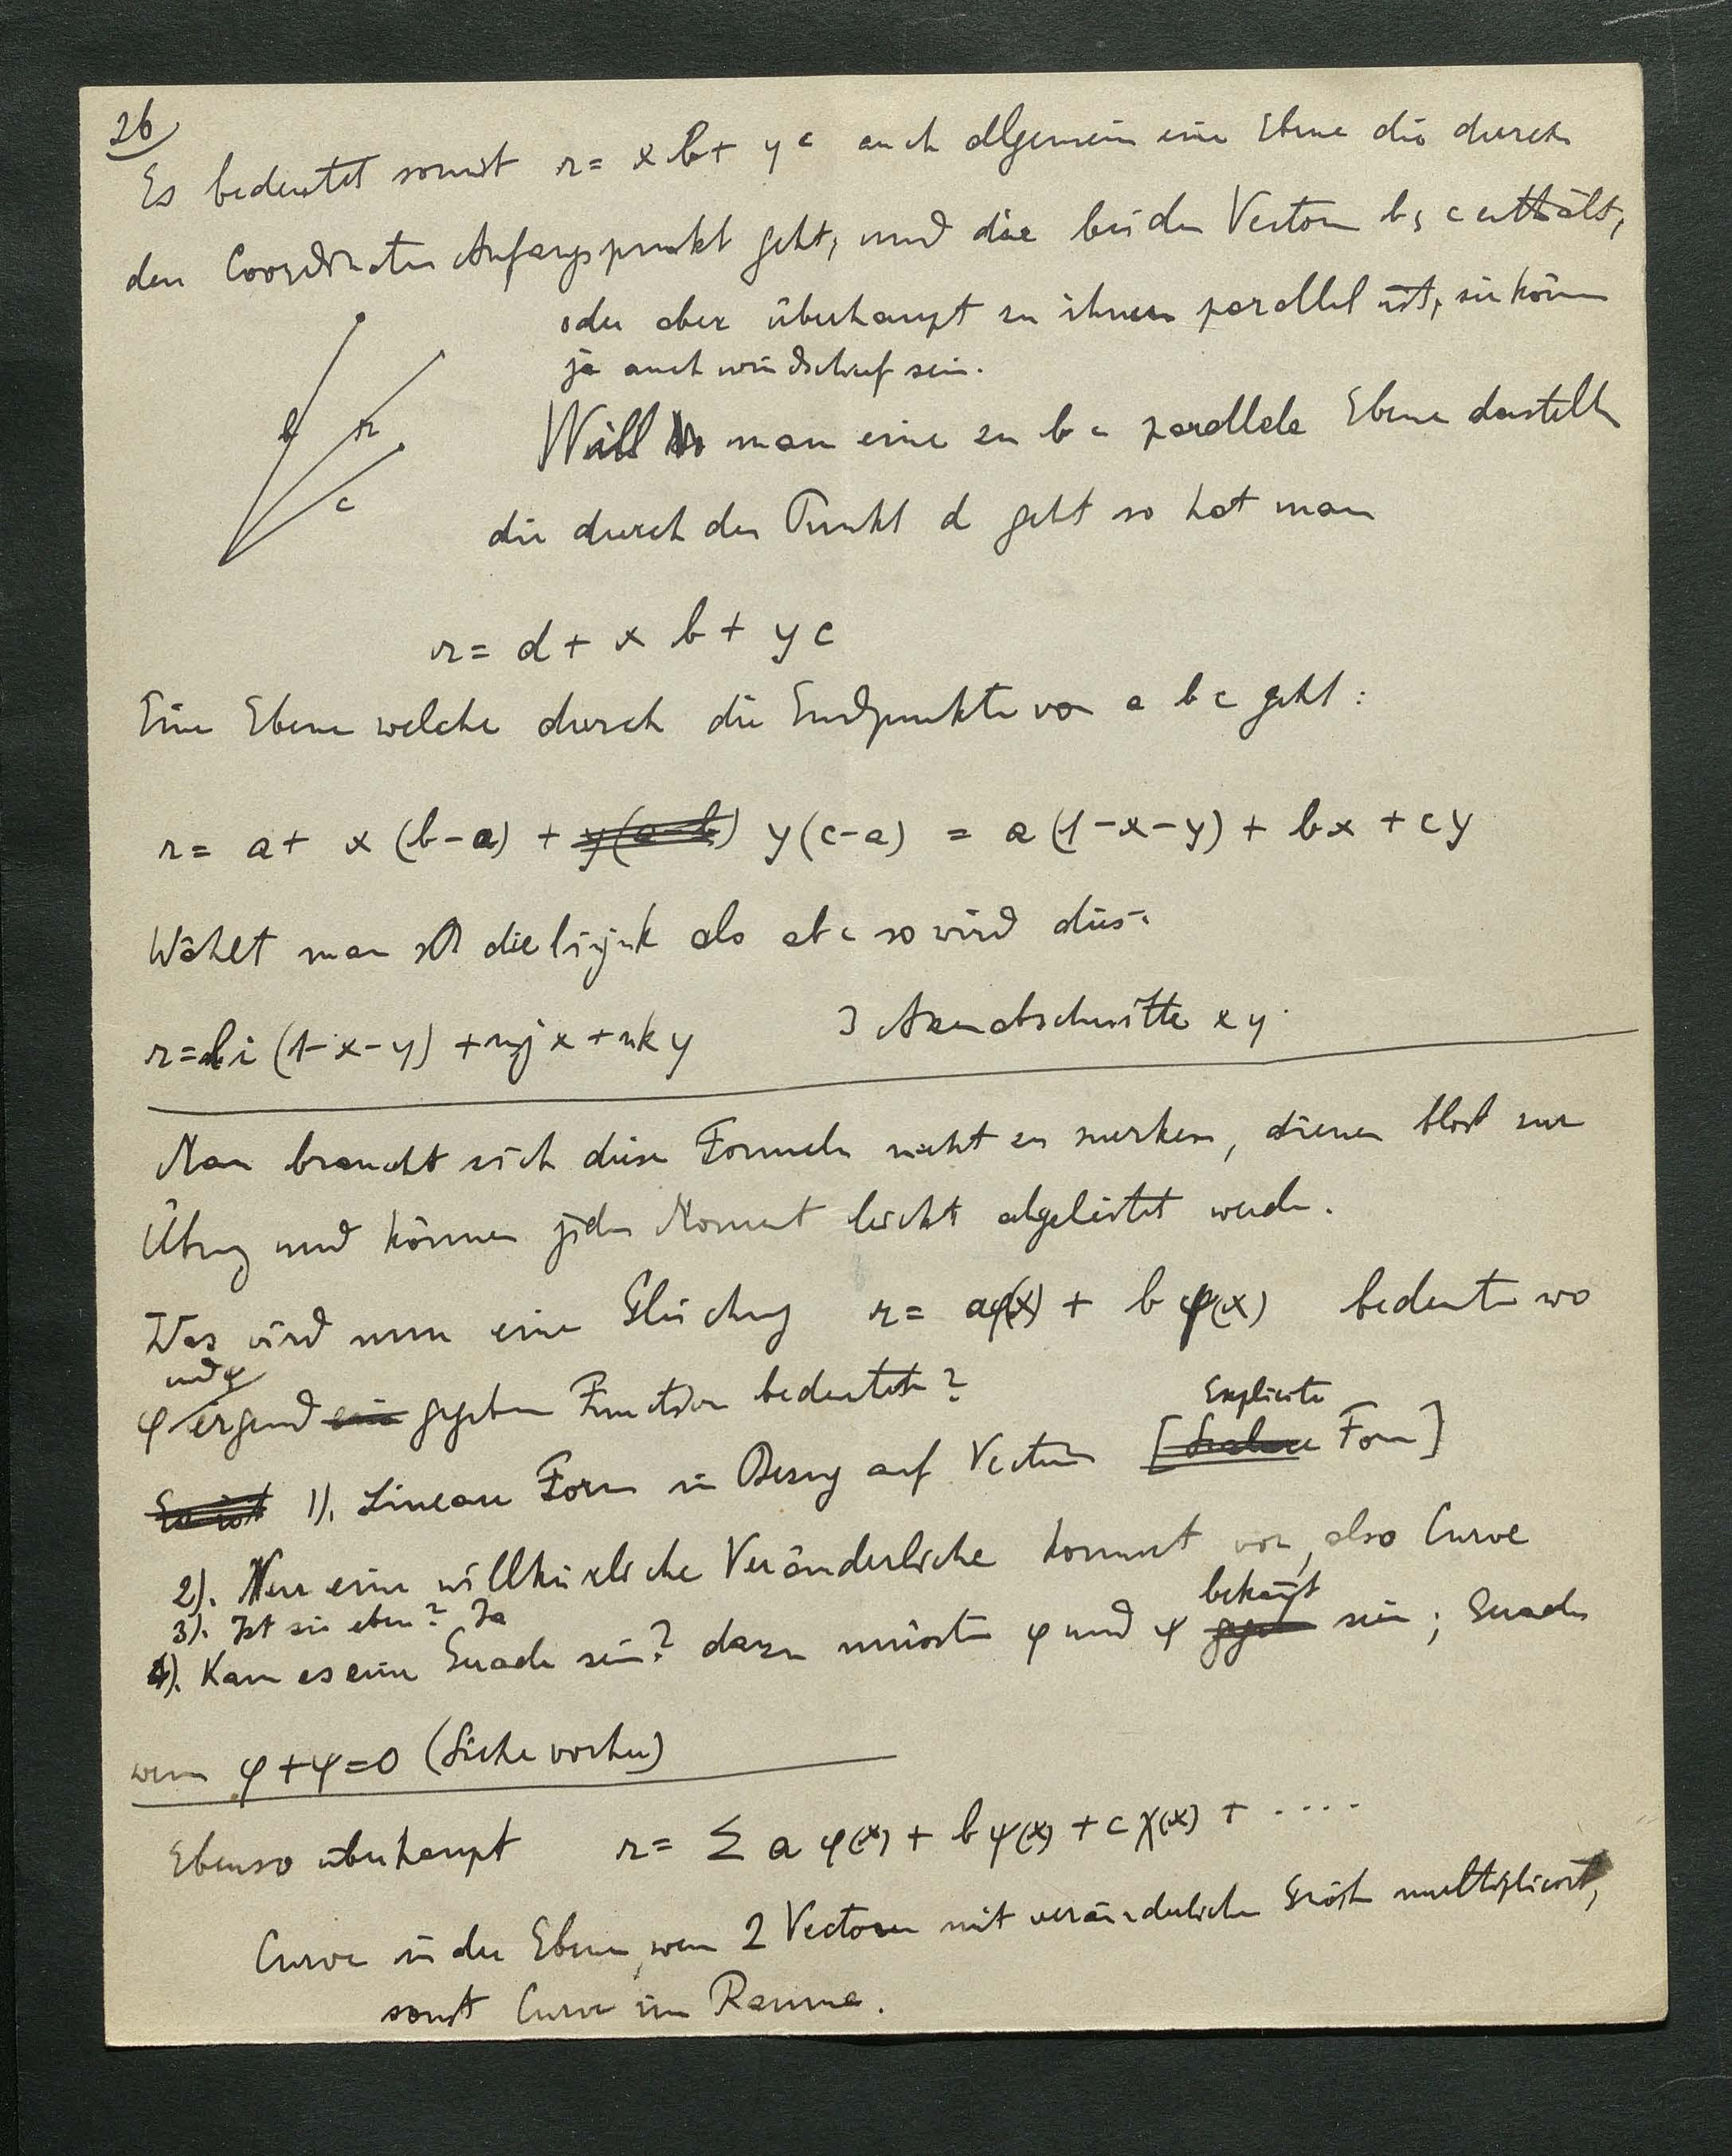 26
Es bedeutet somit r = x b + y c auch allgemein eine Ebene die durch
den Coordinaten Anfangspunkt geht, und die beiden Vectoren b, c enthält,
oder aber überhaupt zu ihnen parallel ist, sie können
ja auch windschief sein.
b r c
Will man eine zu b c parallele Ebene darstellen
die durch den Punkt d geht so hat man
r = d + x b + y c
Eine Ebene welche durch die Endpunkte von a b c geht:
r = a + x (b-a) + y(a-b) y(c-a) = a(1-x-y) + bx + cy
Wählt man die li mj nk als abc so wird dies:
r = li (1-x-y) + mj x + nk y 3 Axenabschnitte x y
Man braucht sich diese Formeln nicht zu merken, dienen bloß zur
Übung und können jeden Moment leicht abgeleitet werden.
Was wird nun eine Gleichung r = aφ(x) + b ψ(x) bedeuten wo
und ψ
φ irgend eine gegebene Function bedeuten?
Explicite
Es ist 1). Lineare Form in Bezug auf Vectoren [ Form]
2). Nur eine willkürliche Veränderliche kommt vor, also Curve
3). Ist sie eben? Ja
bekannt
4). Kann es eine Gerade sein? dazu müssten φ und ψ gegeben sein; Gerade
wenn φ+ψ=0 (Siehe vorher)
Ebenso überhaupt r = Σ a φ(x) + b ψ(x) + c χ(x) + ....
Curve in der Ebene, wenn 2 Vectoren mit veränderlichen Größen multipliciert,
sonst Curve im Raume.